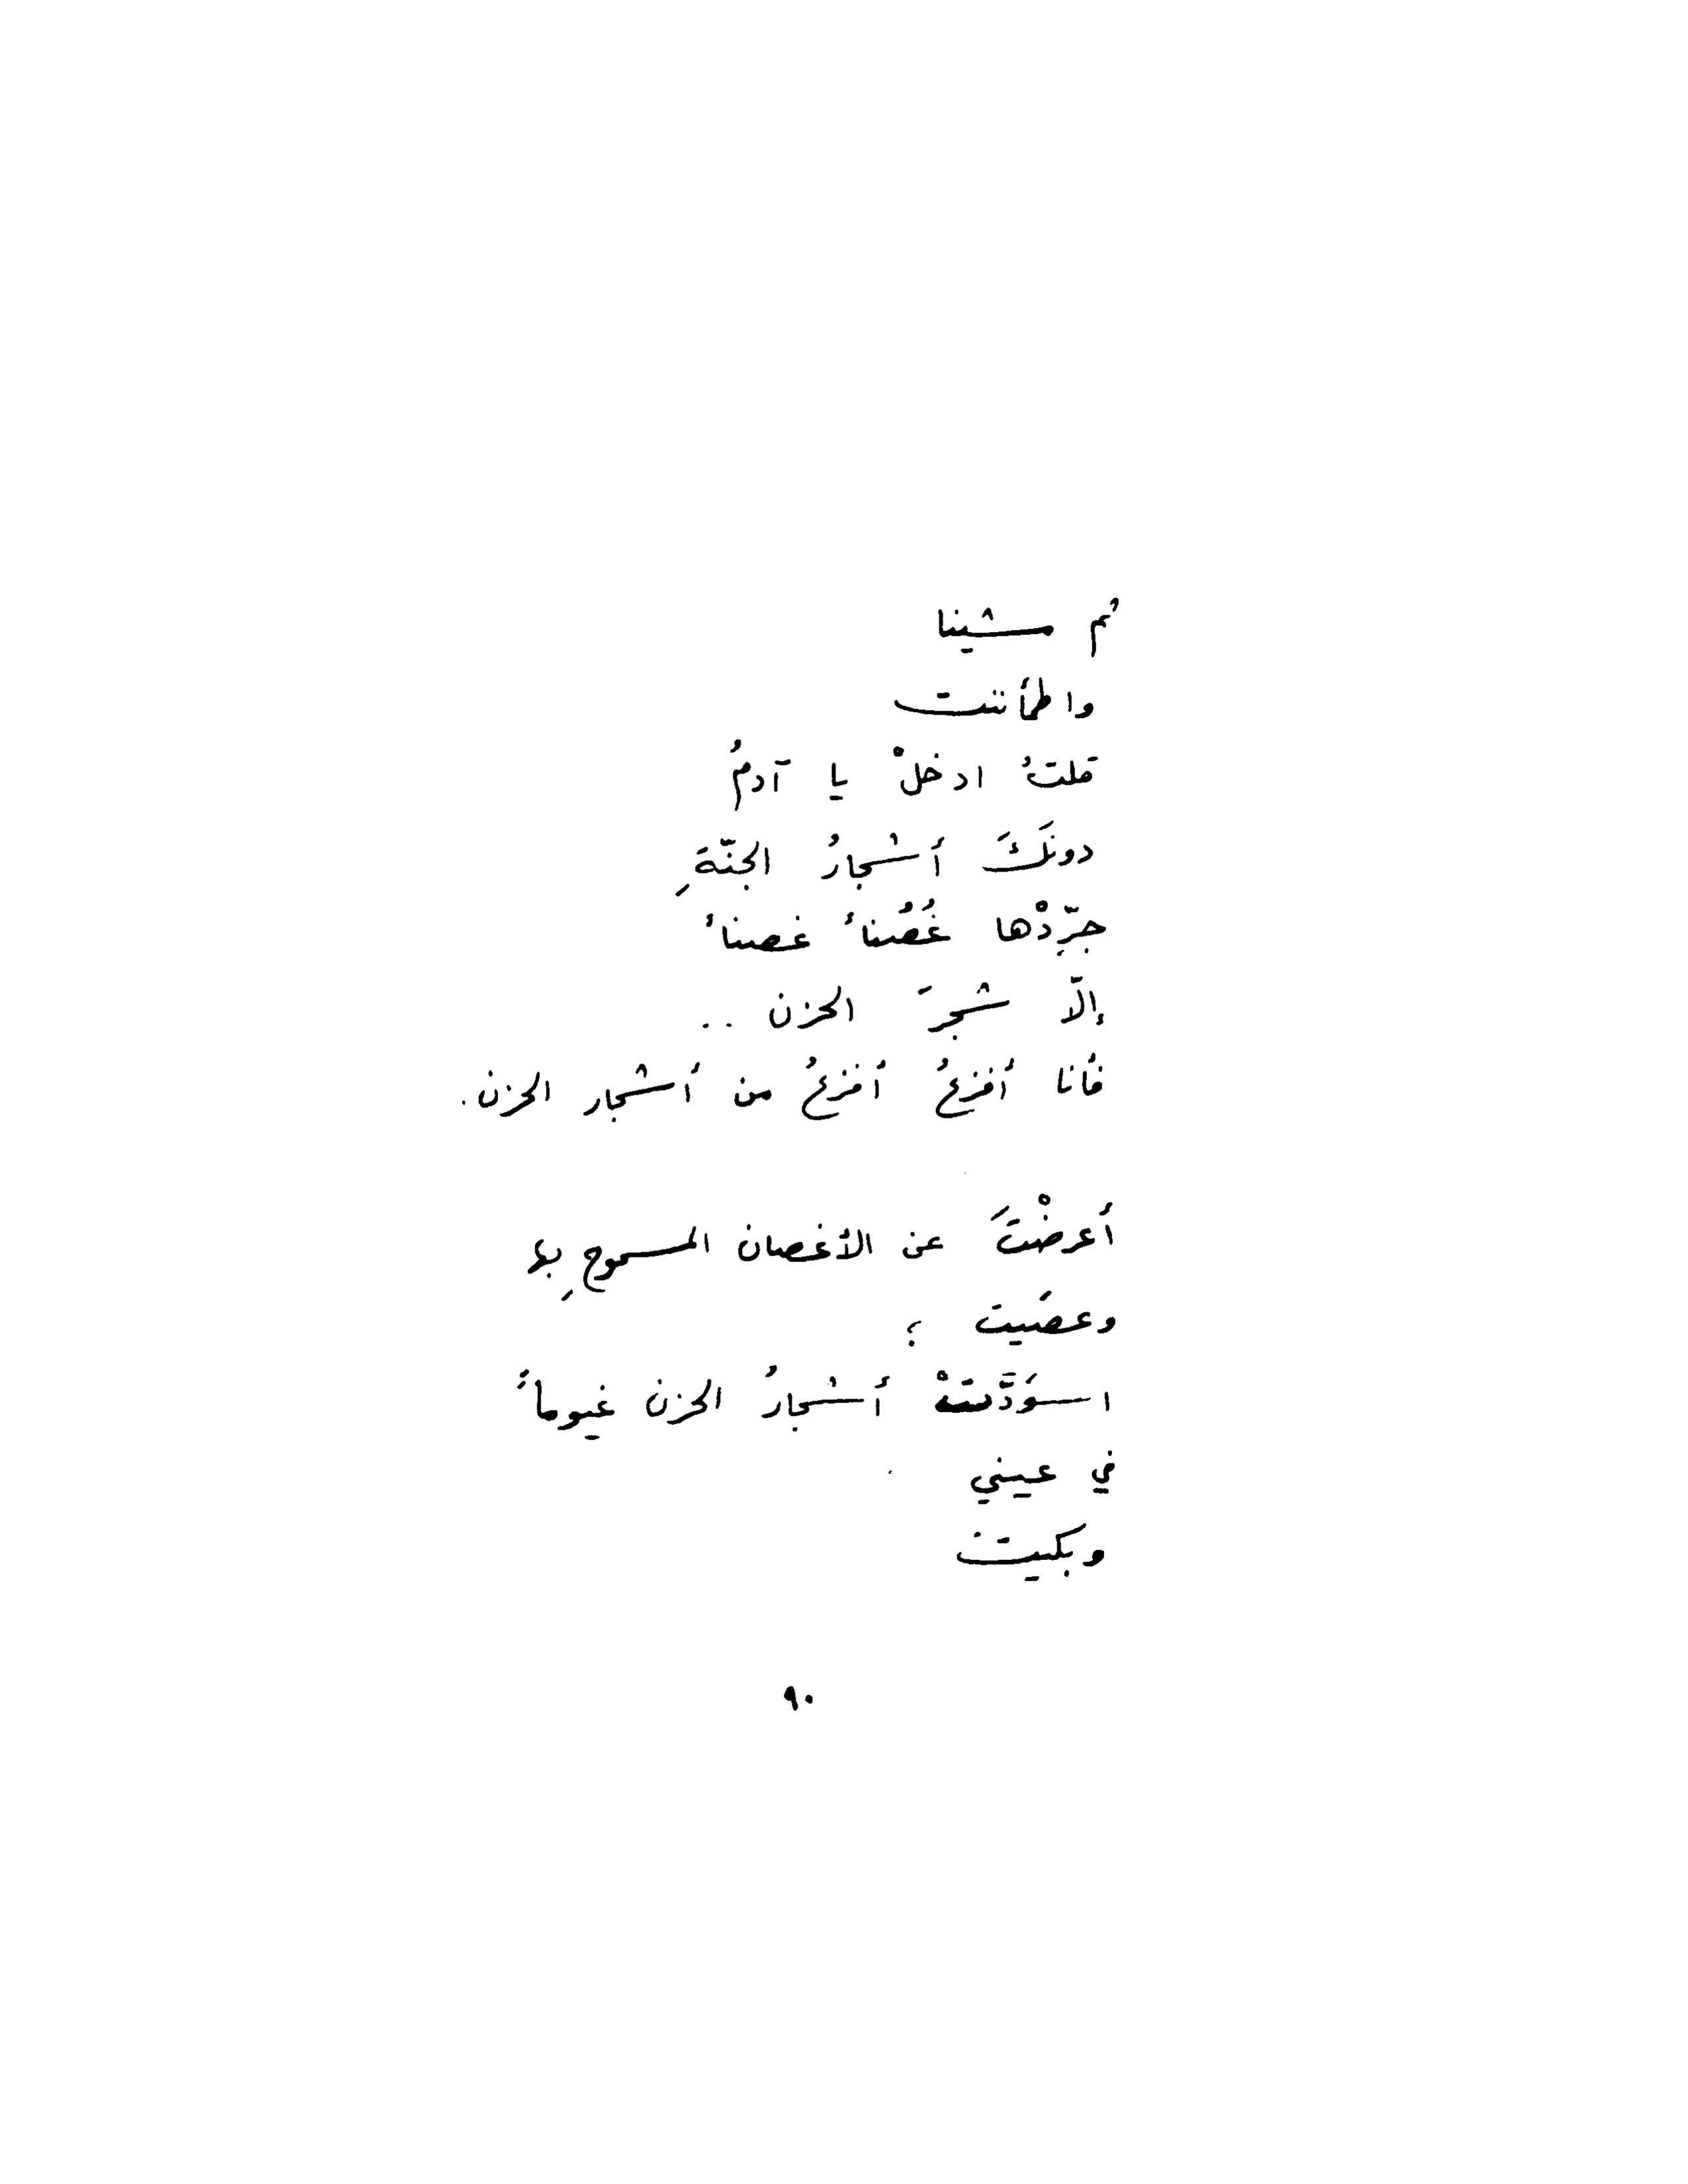 ثم مشينا
واطمأننت
قلتُ ادخلْ يا آدمُ
دونَكَ أشجارُ الجنّةِ
جرِّدْها غُصُناً غصناً
إلّا شجرَ الحزن ..
فأنا أفزعُ أفزعُ من أشجار الحزن.
أعرضْتَ عن الأغصان المسموحِ بها
وعصَيت ؛
اسوَدَّتْ أشجارُ الحزن غيوماً
في عيني
وبكيت
٩٠